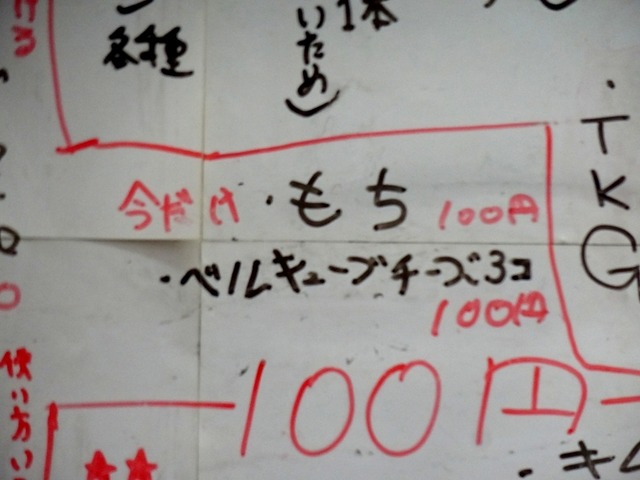 各種
1本
いため)
今だけ ・もち 100円
・ベルキューブチーズ3コ
100円
100円
・TKG
使い方い
★★
・キム